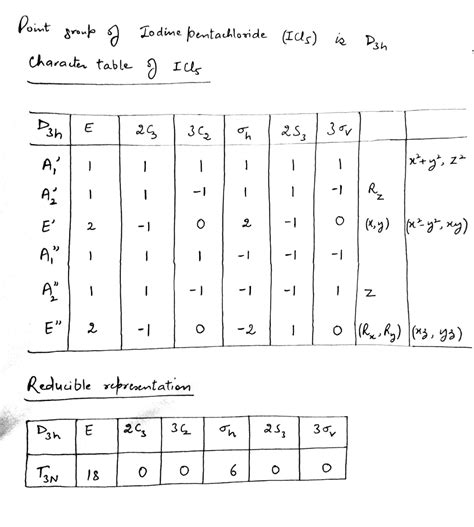 Point group of Iodine pentachloride (ICl5) is D3h
Character table of ICl5
D3h E 2C3 3C2 σh 2S3 3σv
A1' 1 1 1 1 1 1 x²+y², z²
A2' 1 1 -1 1 1 -1 Rz
E' 2 -1 0 2 -1 0 (x,y) (x²-y², xy)
A1" 1 1 1 -1 -1 -1
A2" 1 1 -1 -1 -1 1 z
E" 2 -1 0 -2 1 0 (Rx, Ry) (xz, yz)
Reducible representation
D3h E 2C3 3C2 σh 2S3 3σv
T3N 18 0 0 6 0 0